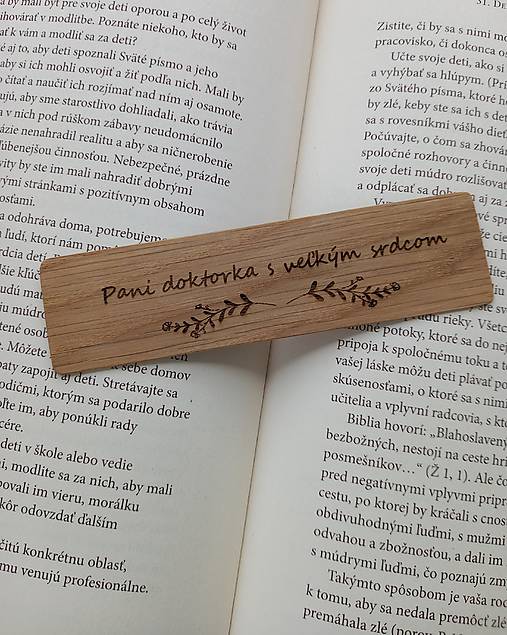 by mali byť pre svoje deti oporou a po celý život
v modlitbe. Poznáte niekoho, kto by sa
k vám a modliť sa za deti?
aj to, aby deti spoznali Sväté písmo a jeho
aby si ich mohli osvojiť a žiť podľa nich. Mali by
čítať a naučiť ich rozjímať nad ním aj osamote.
aby sme starostlivo dohliadali, ako trávia
v nich pod rúškom zábavy neudomácnilo
nenahradil realitu a aby sa ničnerobenie
činnosťou. Nebezpečné, prázdne
by ste im mali nahradiť dobrými
stránkami s pozitívnym obsahom
a odohráva doma, potrebujeme
ľudí, ktorí nám
deti
Môžete sebe domov
zapojiť aj deti. Stretávajte sa
ktorým sa podarilo dobre
im, aby ponúkli rady
deti v škole alebo vedie
modlite sa za nich, aby mali
im vieru, morálku
odovzdať ďalším
konkrétnu oblasť,
mu venujú profesionálne.
Pani doktorka s veľkým srdcom
31.
Zistite, či by sa s nimi
pracovisko, či dokonca
Učte svoje deti, ako si
a vyhýbať sa hlúpym.
zo Svätého písma, ktoré
by zlé, keby ste sa ich s
sa s rovesníkmi vášho
Počúvajte, o čom sa
spoločné rozhovory a
svoje deti múdro
a odplácať sa aj za
rieky.
potoky, ktoré sa do
pripoja k spoločnému toku a
vašej láske môžu deti plávať
skúsenosťami, o ktoré sa s
učitelia a vplyvní radcovia, s
Biblia hovorí: „Blahoslavený
bezbožných, nestojí na ceste
posmešníkov…“ (Ž 1, 1). Ale
pred negatívnymi vplyvmi
cestu, po ktorej by kráčali s
obdivuhodnými ľuďmi, s
odvahou a zbožnosťou, a dali im
s múdrymi ľuďmi, čo poznajú
Takýmto spôsobom je vaša
k tomu, aby sa nedala premôcť
premáhala zlé